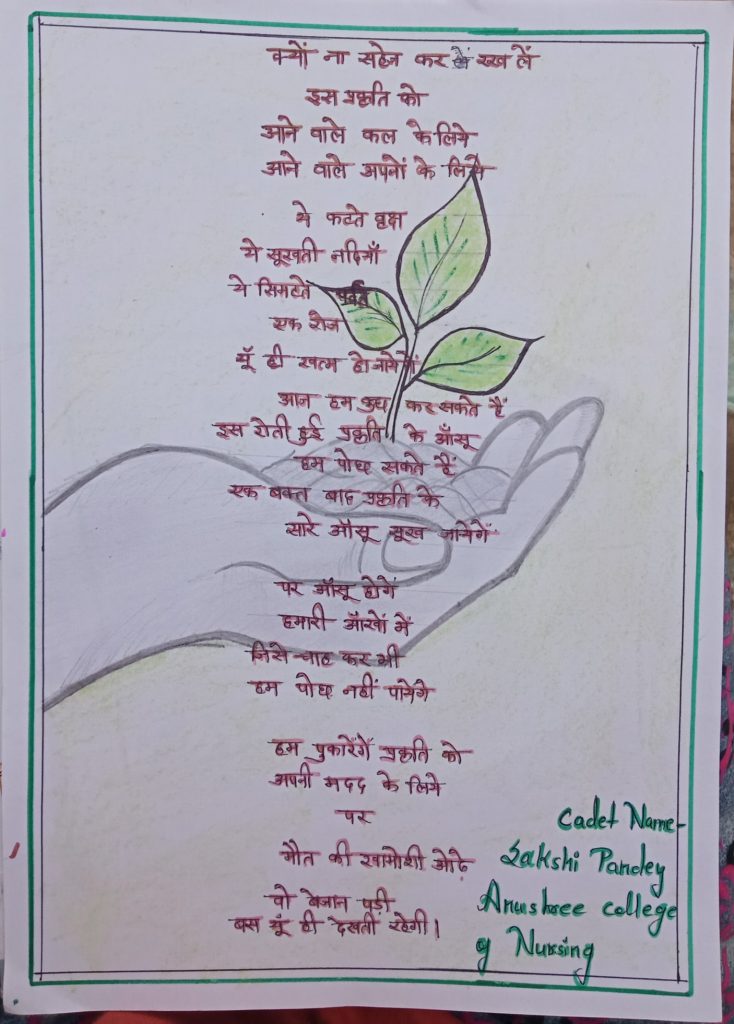 क्यों ना सहेज कर रख लें
इस प्रकृति को
आने वाले कल के लिये
आने वाले अपनों के लिये
ये कटते वृक्ष
ये सूखती नदियाँ
ये सिमटते पर्वत
एक रोज
यूँ ही खत्म हो जायेगें
आज हम कुछ कर सकते हैं
इस रोती हुई प्रकृति के आँसू
हम पोछ सकते हैं
एक वक्त बाद प्रकृति के
सारे आँसू सूख जायेगें
पर आँसू होगें
हमारी आँखों में
जिसे चाह कर भी
हम पोछ नहीं पायेगे
हम पुकारेंगें प्रकृति को
अपनी मदद के लिये
पर
मौत की खामोशी ओढ़े
वो बेजान पड़ी
बस यूँ ही देखती रहेगी।
Cadet Name-
Sakshi Pandey
Anushree college
of Nursing